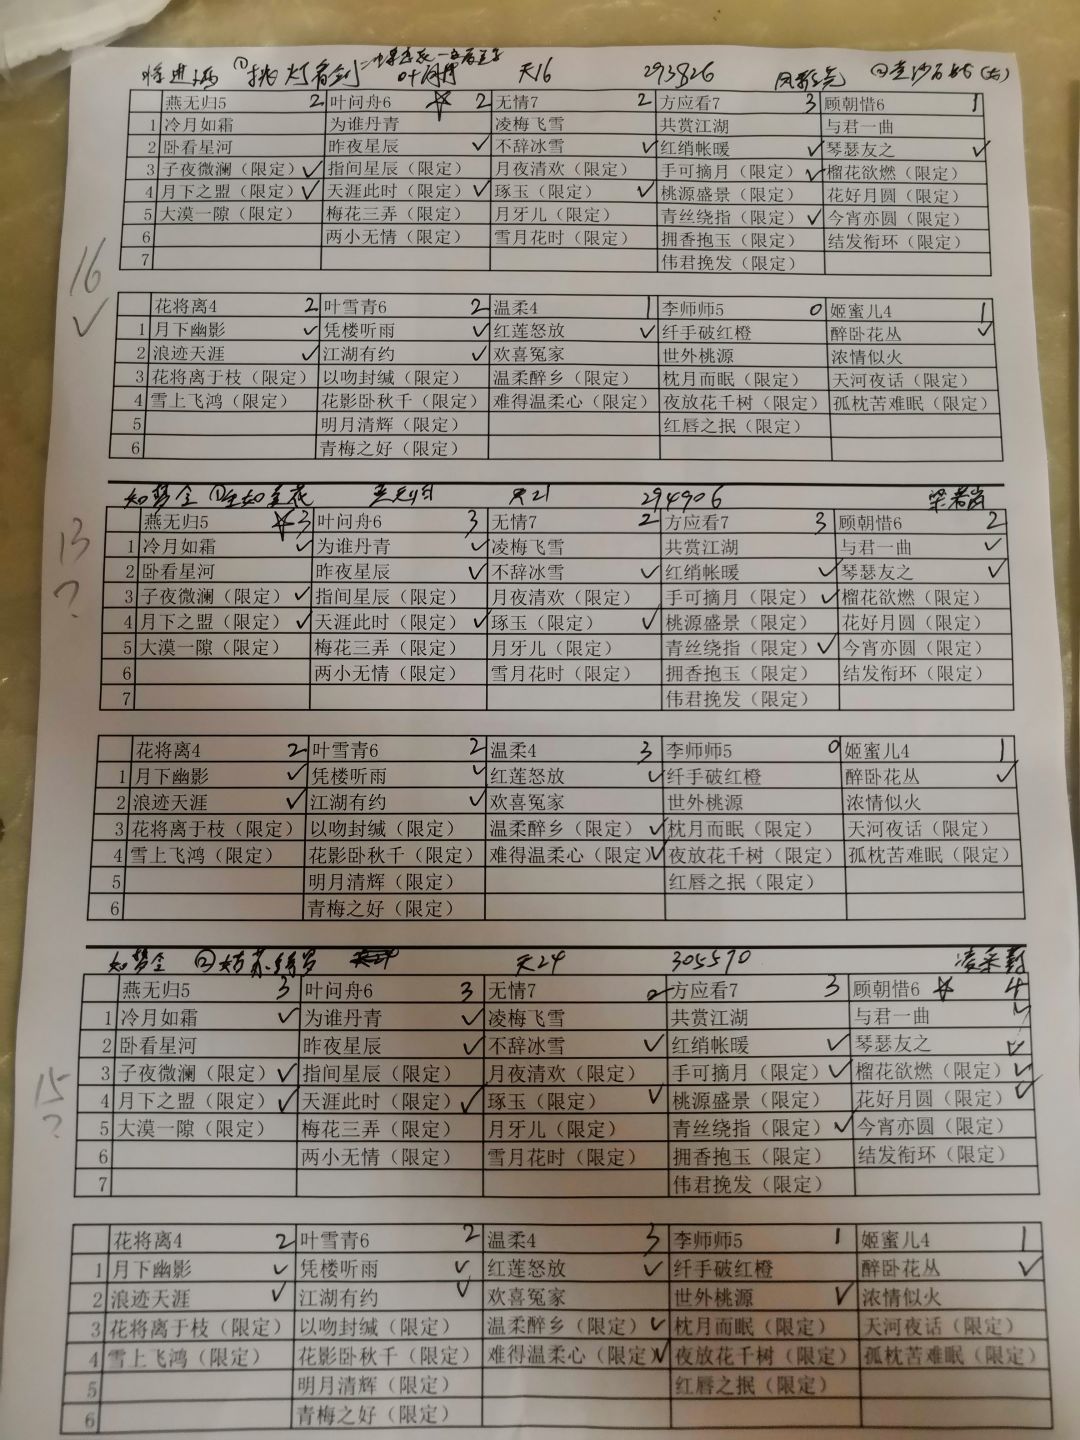 将进酒 ①挑灯看剑 叶问舟 天16 293826
燕无归5 2 叶问舟6 ☆ 2 无情7 2 方应看7 3 顾朝惜6 1
1 冷月如霜 为谁丹青 凌梅飞雪 共赏江湖 与君一曲
2 卧看星河 昨夜星辰 ✓ 不辞冰雪 ✓ 红绡帐暖 ✓ 琴瑟友之 ✓
3 子夜微澜（限定）✓ 指间星辰（限定） 月夜清欢（限定） 手可摘月（限定）✓ 榴花欲燃（限定）
4 月下之盟（限定）✓ 天涯此时（限定）✓ 琢玉（限定）✓ 桃源盛景（限定） 花好月圆（限定）
5 大漠一隙（限定） 梅花三弄（限定） 月牙儿（限定） 青丝绕指（限定）✓ 今宵亦圆（限定）
6 两小无情（限定） 雪月花时（限定） 拥香抱玉（限定） 结发衔环（限定）
7 伟君挽发（限定）
16 ✓
花将离4 2 叶雪青6 2 温柔4 1 李师师5 0 姬蜜儿4 1
1 月下幽影 ✓ 凭楼听雨 ✓ 红莲怒放 ✓ 纤手破红橙 醉卧花丛 ✓
2 浪迹天涯 ✓ 江湖有约 ✓ 欢喜冤家 世外桃源 浓情似火
3 花将离于枝（限定） 以吻封缄（限定） 温柔醉乡（限定） 枕月而眠（限定） 天河夜话（限定）
4 雪上飞鸿（限定） 花影卧秋千（限定） 难得温柔心（限定） 夜放花千树（限定） 孤枕苦难眠（限定）
5 明月清辉（限定） 红唇之抿（限定）
6 青梅之好（限定）
如梦令 天21 294906
燕无归5 ☆3 叶问舟6 3 无情7 2 方应看7 3 顾朝惜6 2
1 冷月如霜 ✓ 为谁丹青 ✓ 凌梅飞雪 共赏江湖 与君一曲 ✓
2 卧看星河 昨夜星辰 ✓ 不辞冰雪 ✓ 红绡帐暖 ✓ 琴瑟友之 ✓
3 子夜微澜（限定）✓ 指间星辰（限定） 月夜清欢（限定） 手可摘月（限定）✓ 榴花欲燃（限定）
4 月下之盟（限定）✓ 天涯此时（限定）✓ 琢玉（限定）✓ 桃源盛景（限定） 花好月圆（限定）
5 大漠一隙（限定） 梅花三弄（限定） 月牙儿（限定） 青丝绕指（限定）✓ 今宵亦圆（限定）
6 两小无情（限定） 雪月花时（限定） 拥香抱玉（限定） 结发衔环（限定）
7 伟君挽发（限定）
13 ?
花将离4 2 叶雪青6 2 温柔4 3 李师师5 0 姬蜜儿4 1
1 月下幽影 ✓ 凭楼听雨 ✓ 红莲怒放 ✓ 纤手破红橙 醉卧花丛 ✓
2 浪迹天涯 ✓ 江湖有约 ✓ 欢喜冤家 世外桃源 浓情似火
3 花将离于枝（限定） 以吻封缄（限定） 温柔醉乡（限定）✓ 枕月而眠（限定） 天河夜话（限定）
4 雪上飞鸿（限定） 花影卧秋千（限定） 难得温柔心（限定）✓ 夜放花千树（限定） 孤枕苦难眠（限定）
5 明月清辉（限定） 红唇之抿（限定）
6 青梅之好（限定）
如梦令 天24 305570
燕无归5 3 叶问舟6 3 无情7 2 方应看7 3 顾朝惜6 ☆ 4
1 冷月如霜 ✓ 为谁丹青 ✓ 凌梅飞雪 共赏江湖 与君一曲 ✓
2 卧看星河 昨夜星辰 ✓ 不辞冰雪 ✓ 红绡帐暖 ✓ 琴瑟友之 ✓
3 子夜微澜（限定）✓ 指间星辰（限定） 月夜清欢（限定） 手可摘月（限定）✓ 榴花欲燃（限定）✓
4 月下之盟（限定）✓ 天涯此时（限定）✓ 琢玉（限定）✓ 桃源盛景（限定） 花好月圆（限定）✓
5 大漠一隙（限定） 梅花三弄（限定） 月牙儿（限定） 青丝绕指（限定）✓ 今宵亦圆（限定）
6 两小无情（限定） 雪月花时（限定） 拥香抱玉（限定） 结发衔环（限定）
7 伟君挽发（限定）
15 ?
花将离4 2 叶雪青6 2 温柔4 3 李师师5 1 姬蜜儿4 1
1 月下幽影 ✓ 凭楼听雨 ✓ 红莲怒放 ✓ 纤手破红橙 醉卧花丛 ✓
2 浪迹天涯 ✓ 江湖有约 ✓ 欢喜冤家 世外桃源 ✓ 浓情似火
3 花将离于枝（限定） 以吻封缄（限定） 温柔醉乡（限定）✓ 枕月而眠（限定） 天河夜话（限定）
4 雪上飞鸿（限定） 花影卧秋千（限定） 难得温柔心（限定）✓ 夜放花千树（限定） 孤枕苦难眠（限定）
5 明月清辉（限定） 红唇之抿（限定）
6 青梅之好（限定）